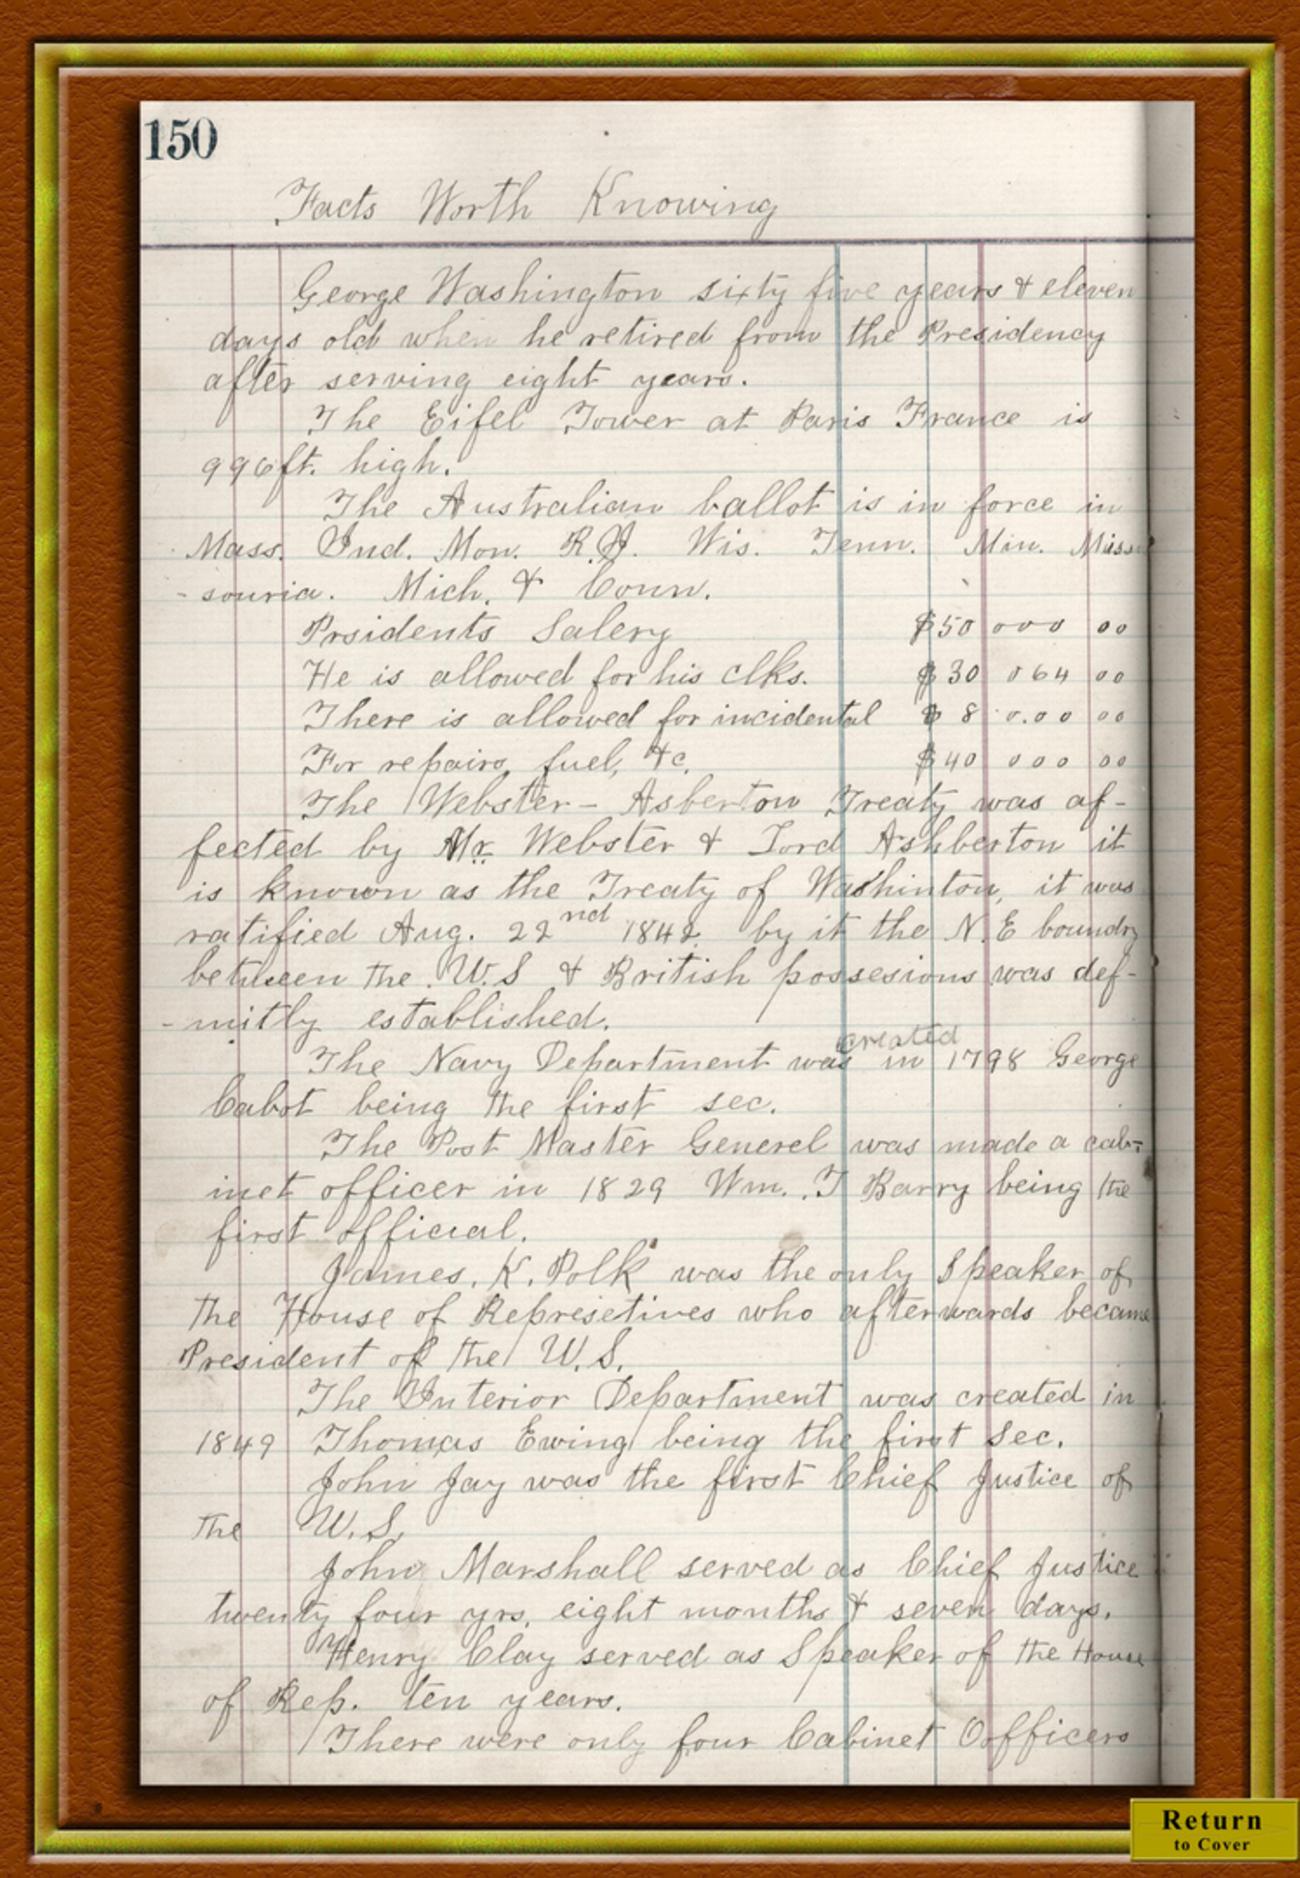 150
Facts Worth Knowing
George Washington sixty five years & eleven
days old when he retired from the Presidency
after serving eight years.
The Eifel Tower at Paris France is
996ft. high.
The Australian ballot is in force in
Mass. Ind. Mon. R.I. Wis. Tenn. Min. Miss
-souria. Mich. & Conn.
Prsidents Salery $50 000 00
He is allowed for his clks. $30 064 00
There is allowed for incidental $8 0.00 00
For repairs, fuel, &c. $40 000 00
The Webster - Asberton Treaty was af-
fected by Mr. Webster & Lord Ashberton it
is known as the Treaty of Washinton, it was
ratified Aug. 22nd 1842 by it the N.E boundry
between the U.S & British possesions was def-
-nitly established.
created
The Navy Department was in 1798 George
Cabot being the first sec.
The Post Master Generel was made a cab-
inet officer in 1829 Wm. T Barry being the
first official.
James. K. Polk was the only Speaker of
the House of Represetives who afterwards became
President of the U.S.
The Interior Department was created in
1849 Thomas Ewing being the first Sec.
John Jay was the first Chief Justice of
the U.S.
John Marshall served as Chief Justice
twenty four yrs, eight months & seven days.
Henry Clay served as Speaker of the House
of Rep. ten years.
There were only four Cabinet Oofficers
Return
to Cover